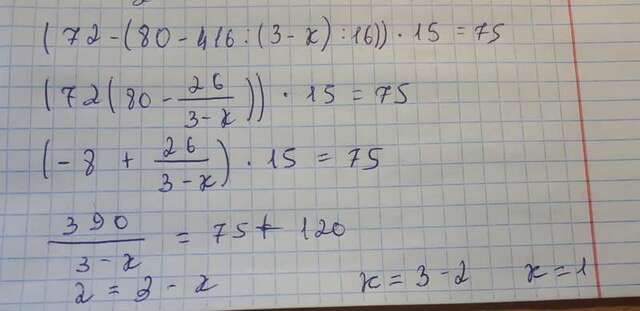 (72-(80-416:(3-x):16))·15=75
(72(80-26/(3-x)))·15=75
(-8+26/(3-x))·15=75
390/(3-x)=75+120
2=3-x x=3-2 x=1